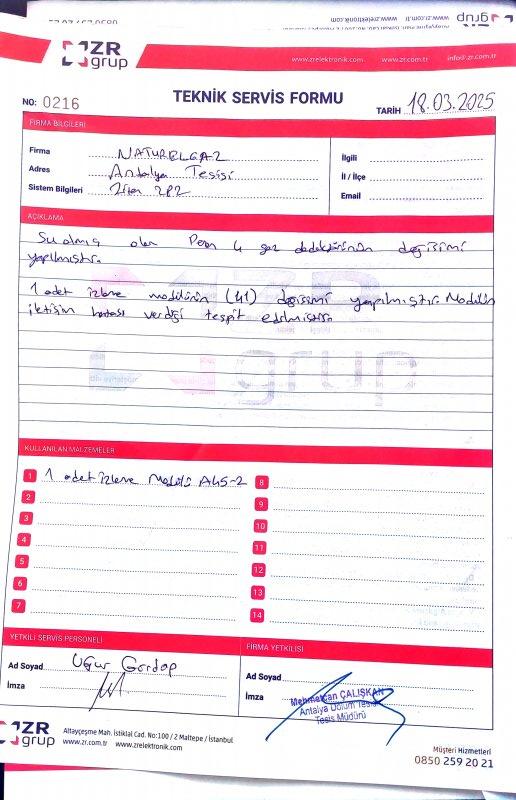 ZR grup
www.zrelektronik.com www.zr.com.tr info@zr.com.tr
NO: 0216 TEKNİK SERVİS FORMU TARİH 18.03.2025
FİRMA BİLGİLERİ
Firma NATURELGAZ İlgili
Adres Antalya Tesisi İl / İlçe
Sistem Bilgileri Ziton ZP2 Email
AÇIKLAMA
Su almış olan Peron 4 gaz dedektörünün değişimi
yapılmıştır.
1 adet izleme modülünün (41) değişimi yapılmıştır. Modülün
iletişim hatası verdiği tespit edilmiştir.
KULLANILAN MALZEMELER
1 1 adet izleme Modülü A45-2
2
3
4
5
6
7
8
9
10
11
12
13
14
YETKİLİ SERVİS PERSONELİ
Ad Soyad Uğur
İmza
FİRMA YETKİLİSİ
Ad Soyad
İmza
Mehmetcan ÇALIŞKAN
Antalya Dolum Tesisi
Tesis Müdürü
ZR grup
Altayçeşme Mah. İstiklal Cad. No:100 / 2 Maltepe / İstanbul
www.zr.com.tr www.zrelektronik.com
Müşteri Hizmetleri
0850 259 20 21